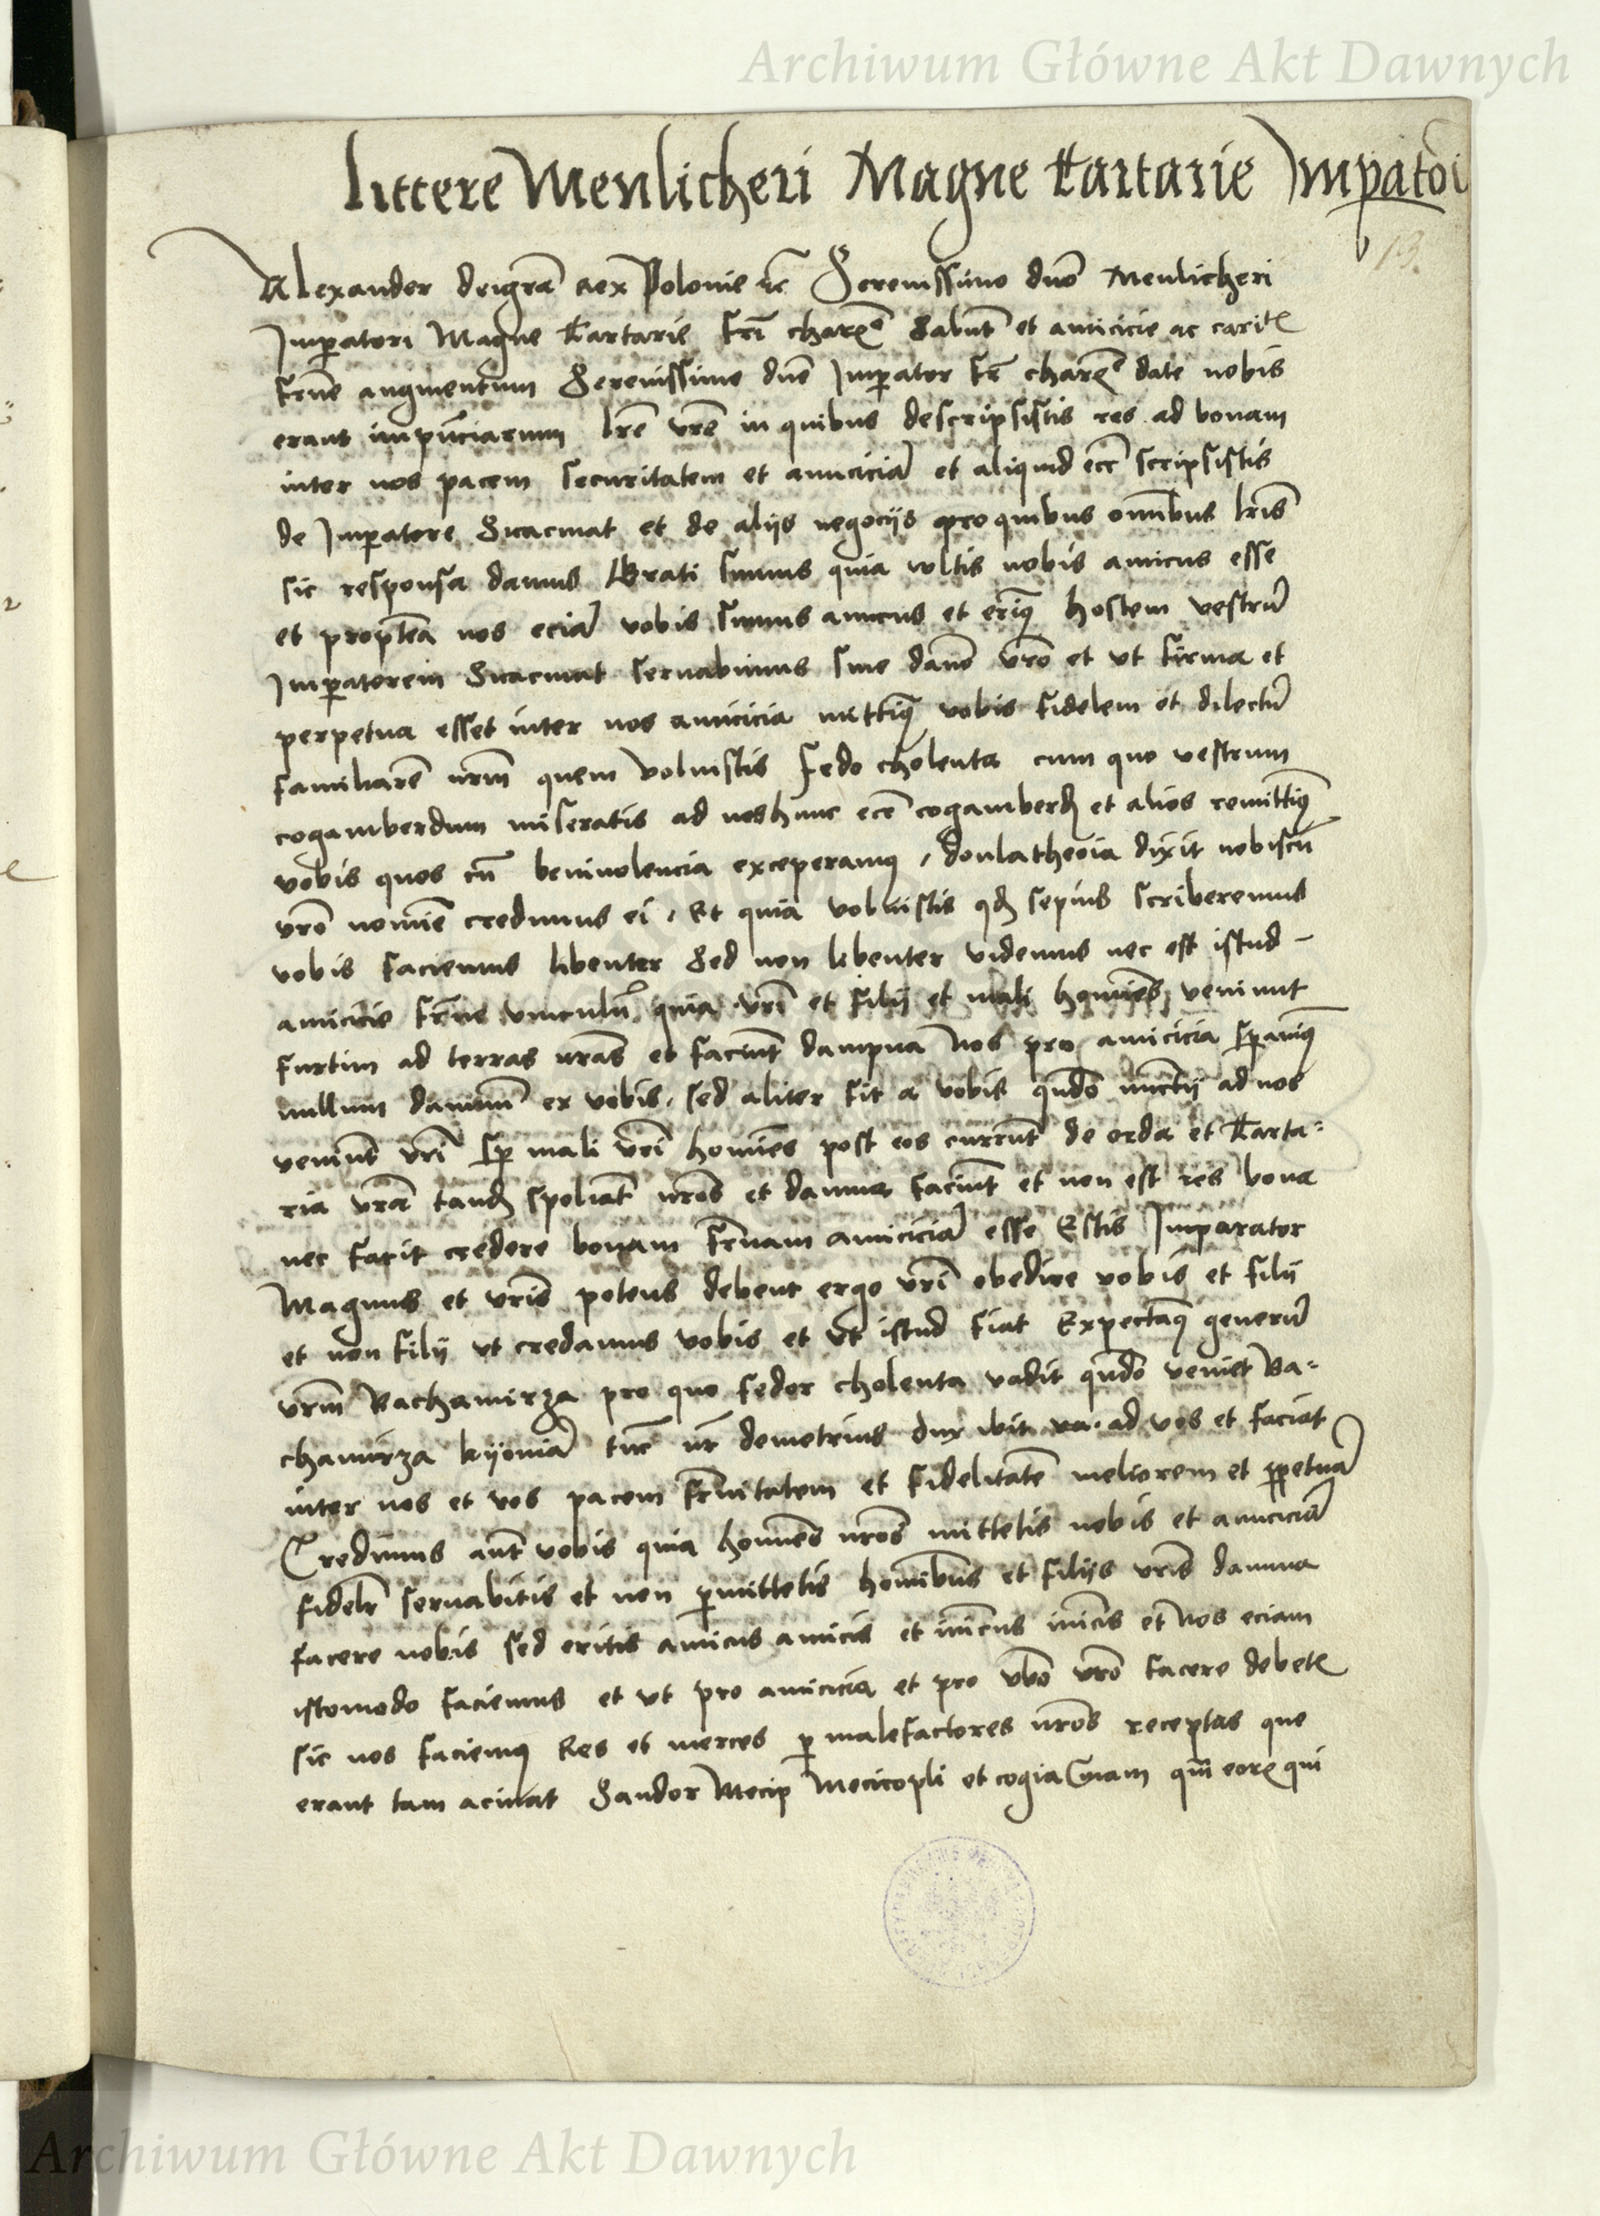 Archiwum Główne Akt Dawnych
Littere Menlicheri Magne Tartarie Impatoi
13.
Alexander dei gra Rex Polonie etc Serenissimo dno Menlicheri
Imperatori Magne Tartarie fri charo Salutem et amicicie ac carit
frne augmentum Serenissime dne Imperator fr chare date nobis
erant lre vre in quibus descripsistis res ad bonam
inter nos pacem securitatem et amiciciam et aliquid ecc scripsistis
de Imperatore Sicacmat et de alijs negocijs pro quibus omnibus lris
sic responsa damus Grati sumus quia vltis nobis amicus esse
et propterea nos eciam vobis sumus amicus et hostem vestrum
Imperatorem Sicacmat servabimus sine damno vro et vt firma et
perpetua esset inter nos amicicia mittimus vobis fidelem et dilectum
familiarem nrm quem voluistis Fedo cholenta cum quo vestrum
cogamberdum miseratis ad nos hunc ecc cogamberdi et alios remittimus
vobis quos cum benivolencia exceperamus, doulatheoia dixit nobiscum
vro nomine credimus ei. Et quia voluistis quod sepius scriberemus
vobis faciemus libenter Sed non libenter videmus nec est istud -
amicicie frne vinculum quia vri et filij et mali homines veniunt
furtim ad terras nras et faciunt dampna Nos pro amicicia speramus
nullum damnum ex vobis. sed aliter fit a vobis quando nunctij ad nos
veniunt vri semper mali vri homines post eos currunt de orda et Tarta-
ria vra tandem spoliant nros et damna faciunt et non est res bona
nec facit credere bonam frnam amiciciam esse Estis Imparator
Magnus et vris potens debent ergo vri obedire vobis et filij
et non filij vt credamus vobis et vt istud fiat Expectamus generum
vrm Bachamirza pro quo Fedor cholenta vadit quando veniet Ba-
chamirza kijoviam tunc nr demetrius dux ibit ad vos et faciat
inter nos et vos pacem frnitatem et fidelitatem meliorem et perpetuam
Credimus autem vobis quia homines nros mittetis nobis et amiciciam
fideliter servabitis et non permittetis hominibus et filijs vris damna
facere nobis sed eritis amicus amicis et inimicus inimicis et Nos eciam
istomodo faciemus et vt pro amicicia et pro vbo vro facere debetis
sic nos faciemus Res et merces per malefactores nros receptas que
erant tam acinat Sandor Mecip Mecicopli et cogia qm eorum qui
Archiwum Główne Akt Dawnych